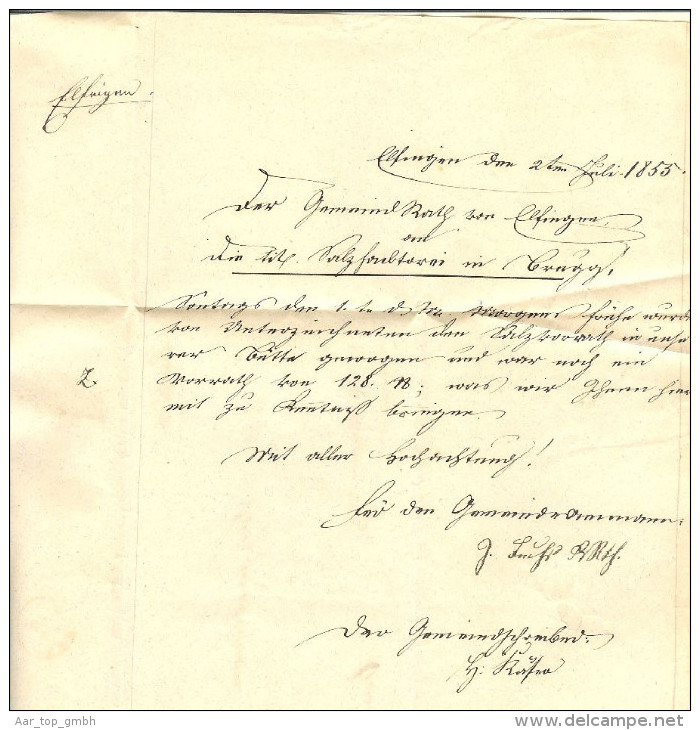 Elfingen.
Elfingen den 2ten Juli. 1855.
Der GemeindRath von Elfingen
an
Die tit. Salzfaktorei in Brugg.
Sontags den 1. te d. M. Morgens frühe wurde
von Unterzeichneten den Salzvorrath in unse
rer Bütte gewogen und war noch ein
Vorrath von 128. ℔. was wir Ihnen hier
2.
mit zu Kenntniß bringen.
Mit aller Hochachtung!
Für den Gemeindeammann:
J.
Der Gemeindschreiber:
H: Käser
Aar_top_gmbh
www.delcampe.net